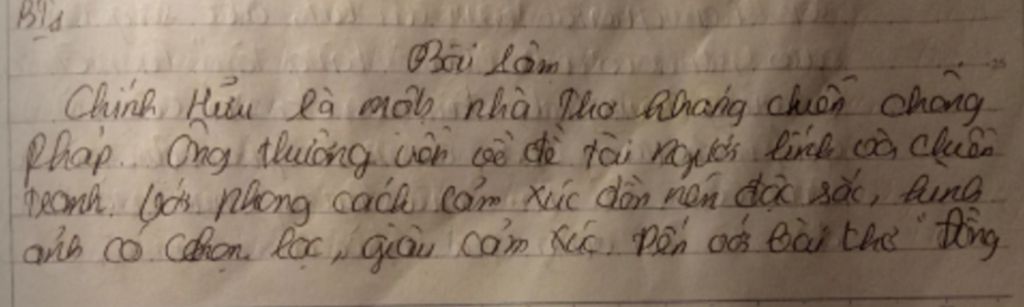 BT1
Bài làm
Chính Hữu là một nhà thơ kháng chiến chống
Pháp. Ông thường viết về đề tài người lính và chiến
tranh. Với phong cách cảm xúc dồn nén đặc sắc, hình
ảnh có chọn lọc, giàu cảm xúc. Đến với bài thơ "Đồng